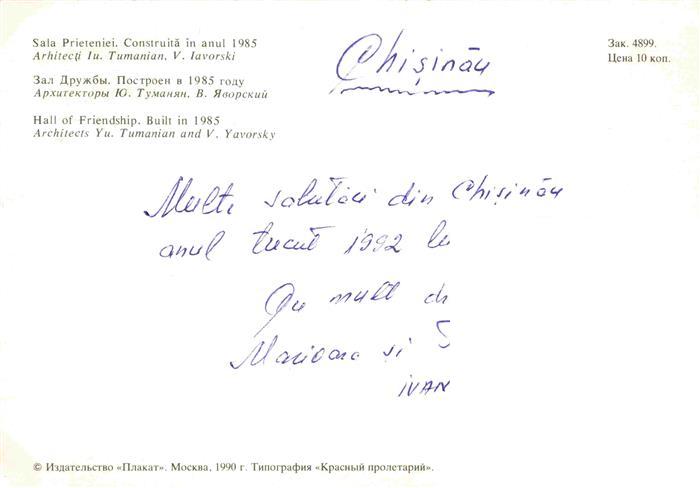 Sala Prieteniei. Construită în anul 1985
Arhitecţi Iu. Tumanian, V. Iavorski
Зал Дружбы. Построен в 1985 году
Архитекторы Ю. Туманян, В. Яворский
Hall of Friendship. Built in 1985
Architects Yu. Tumanian and V. Yavorsky
Chişinău
Зак. 4899.
Цена 10 коп.
Multe salutări din Chişinău
anul trecut 1992
Cu mult
Marioara şi
IVAN
© Издательство «Плакат». Москва, 1990 г. Типография «Красный пролетарий».